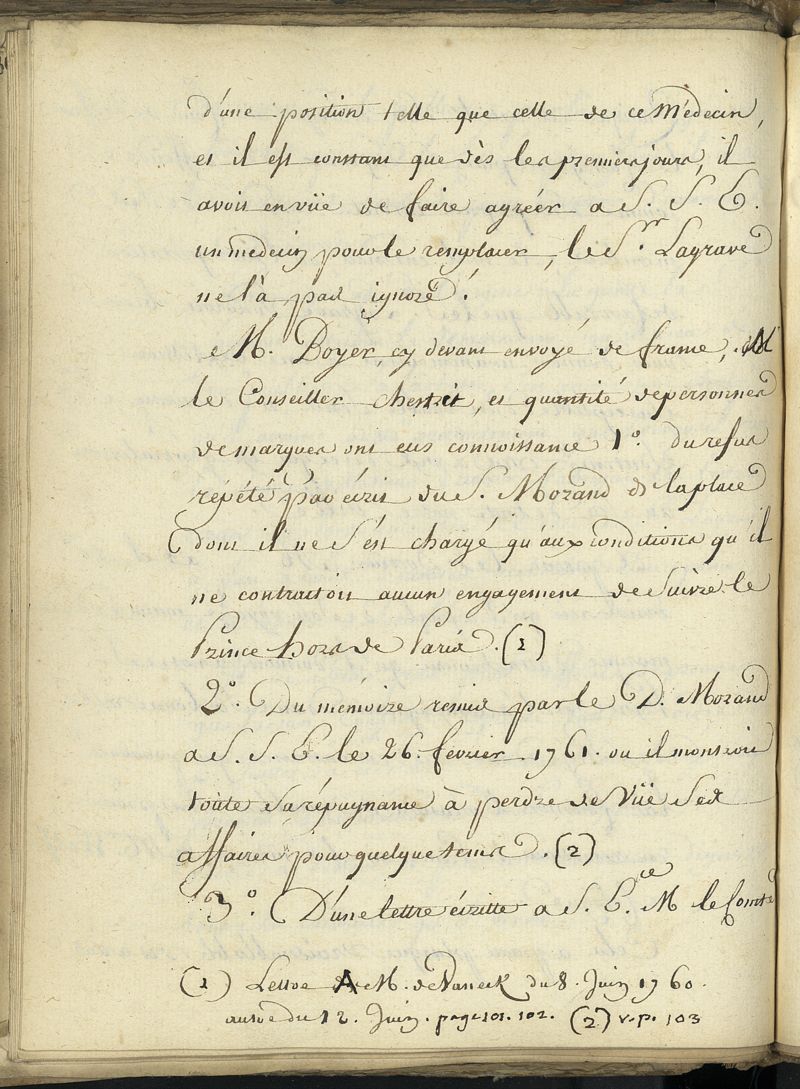 d'une position telle que celle de ce Médecin,
et il est constant que dès les premiers jours, il
avoit en vüe de faire agréer a S. S. E.
un medecin pour le remplacer, le S.r Lagrave
ne l'a pas ignoré.
M. Boyer, cy devant envoyé de france, M
le Conseiller chestret, et quantité de personnes
de marques ont eus connoissance 1°. du refus
répété par écrit du S. Morand de la place
dont il ne s'est chargé qu'aux conditions qu'il
ne contractoit aucun engagement de suivre le
Prince hors de Paris. (1)
2°. Du mémoire remis par le D. Morand
a S. S. E. le 26. fevrier 1761. ou il montroit
toute sa répugnance à perdre de Vüe ses
affaires pour quelque tems. (2)
3°. D'une lettre écritte a S. E.ce M le Comte
(1) Lettre A M. de Vaneck du 8. Juin 1760.
autre du 12. Juin. page 101. 102. (2) v. p. 103